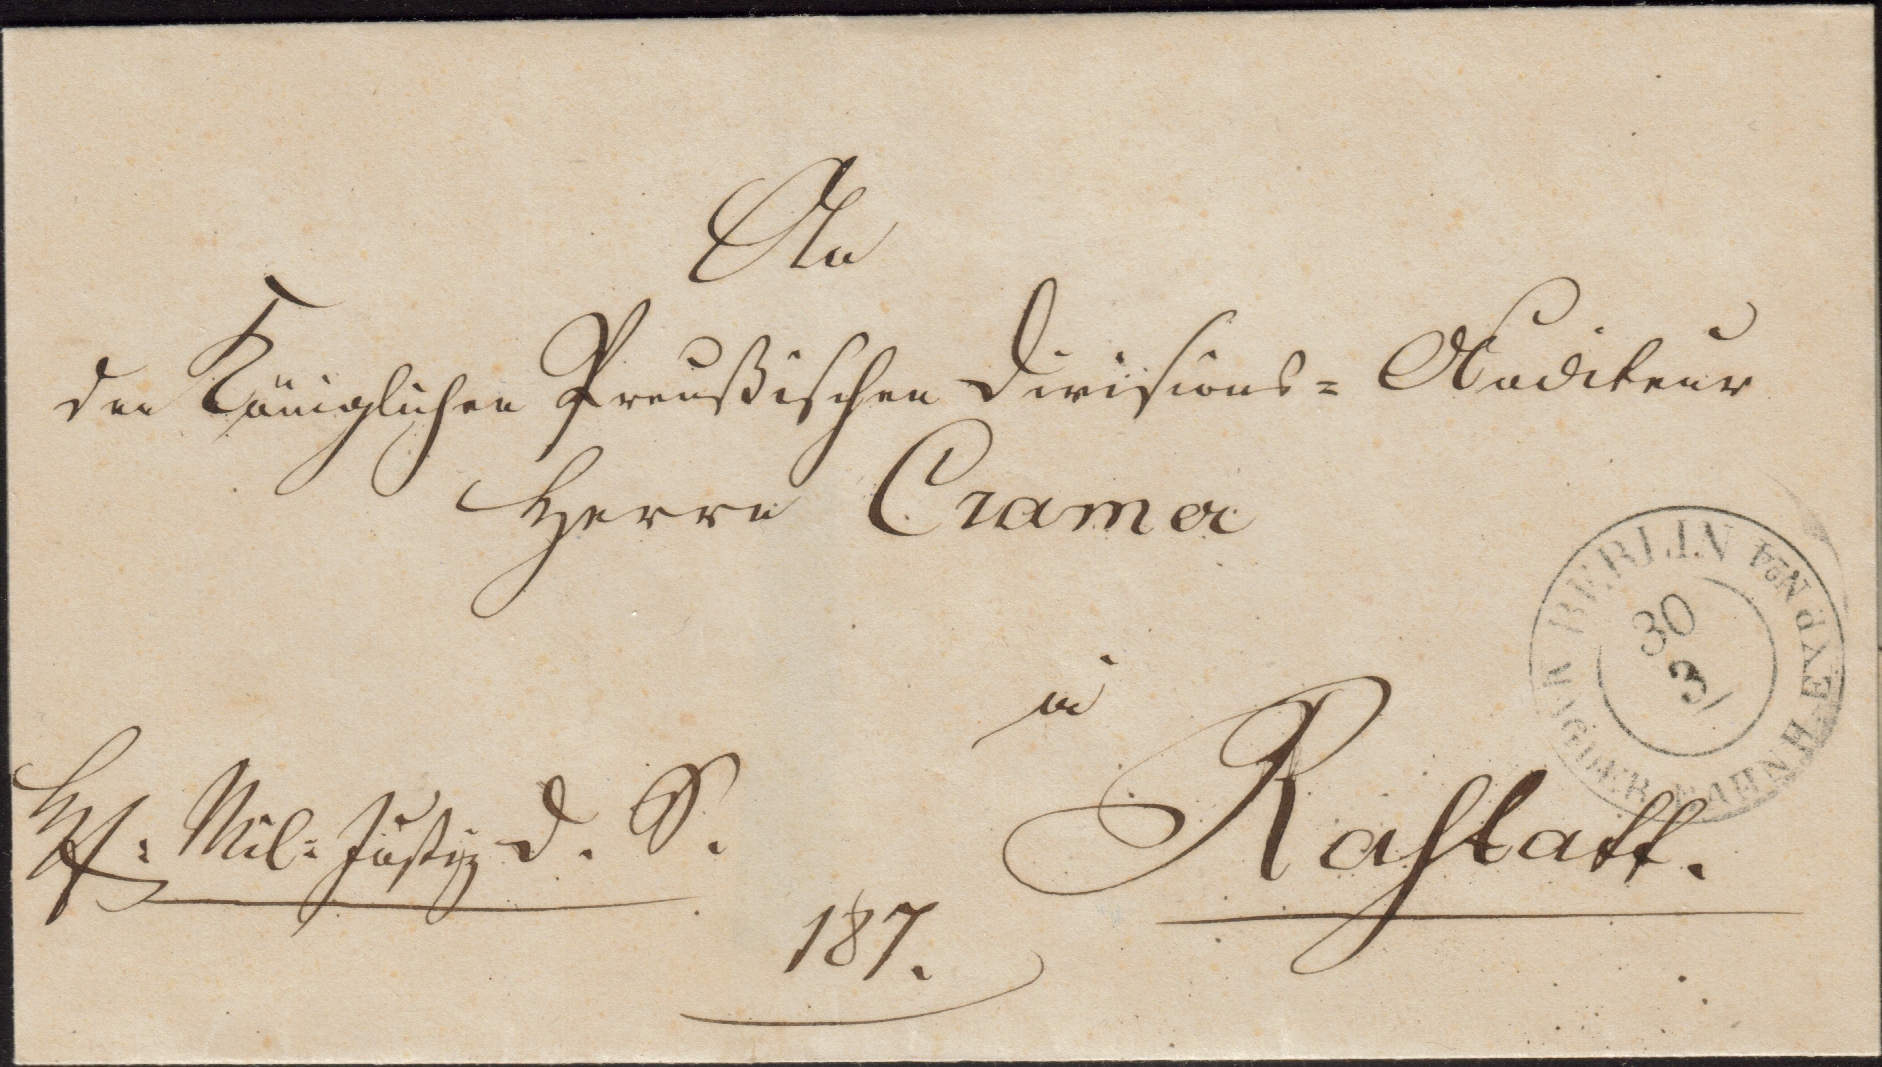 An
den Königlichen Preußischen Divisions= Auditeur
Herrn Cramer
in
Rastatt.
Mil: Justiz d. S.
187.
BERLIN POST-EXP. No 4
MAGDEB. BAHNH.
30
3